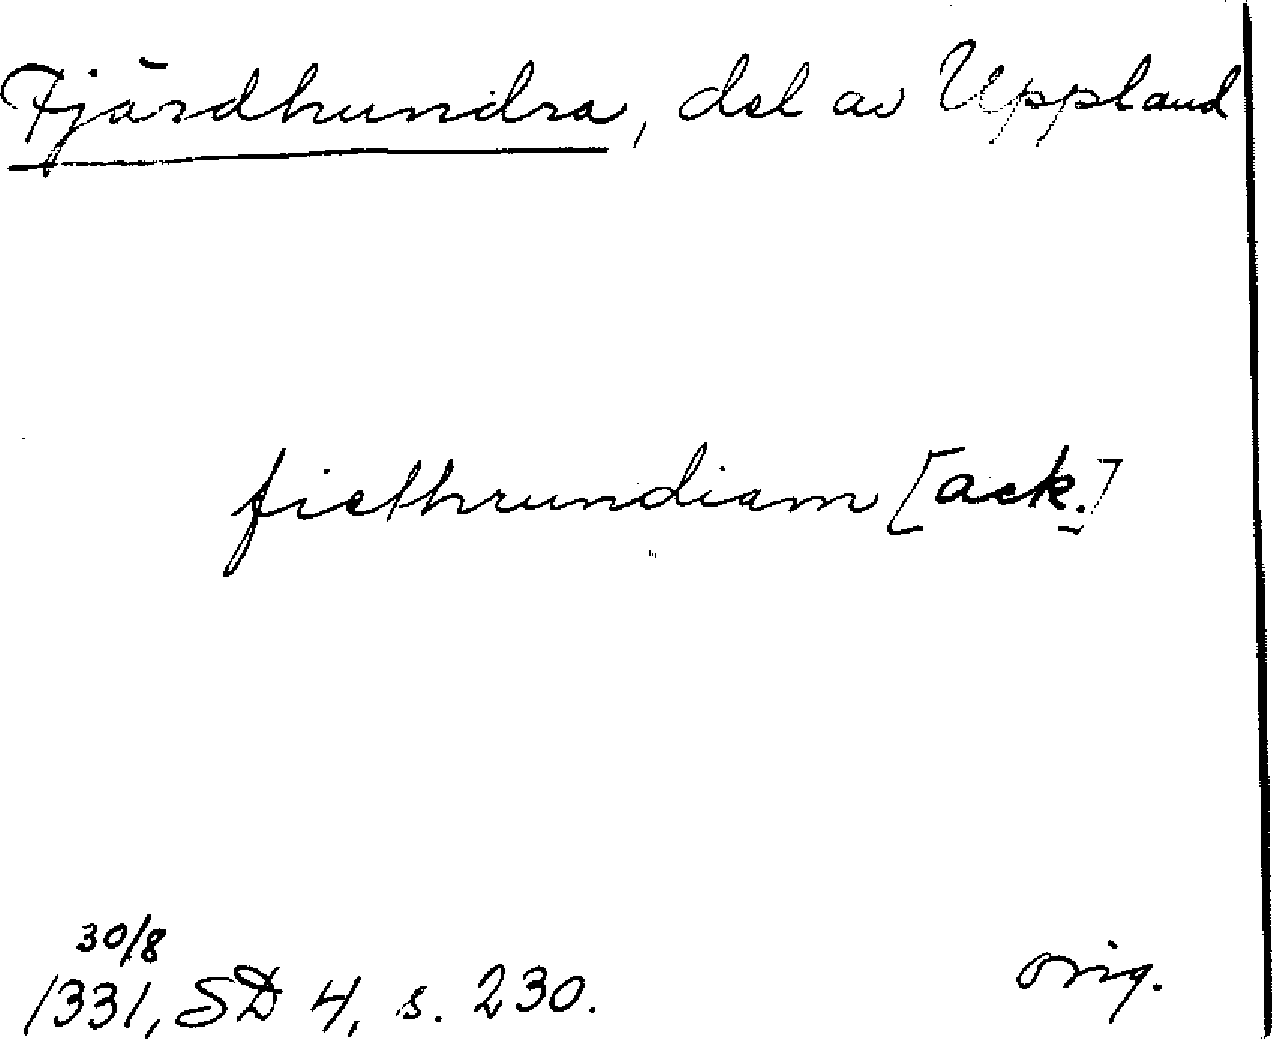 Fjärdhundra, del av Uppland
fiethrundiam [ack.]
30/8
1331, SD 4, s. 230.
orig.